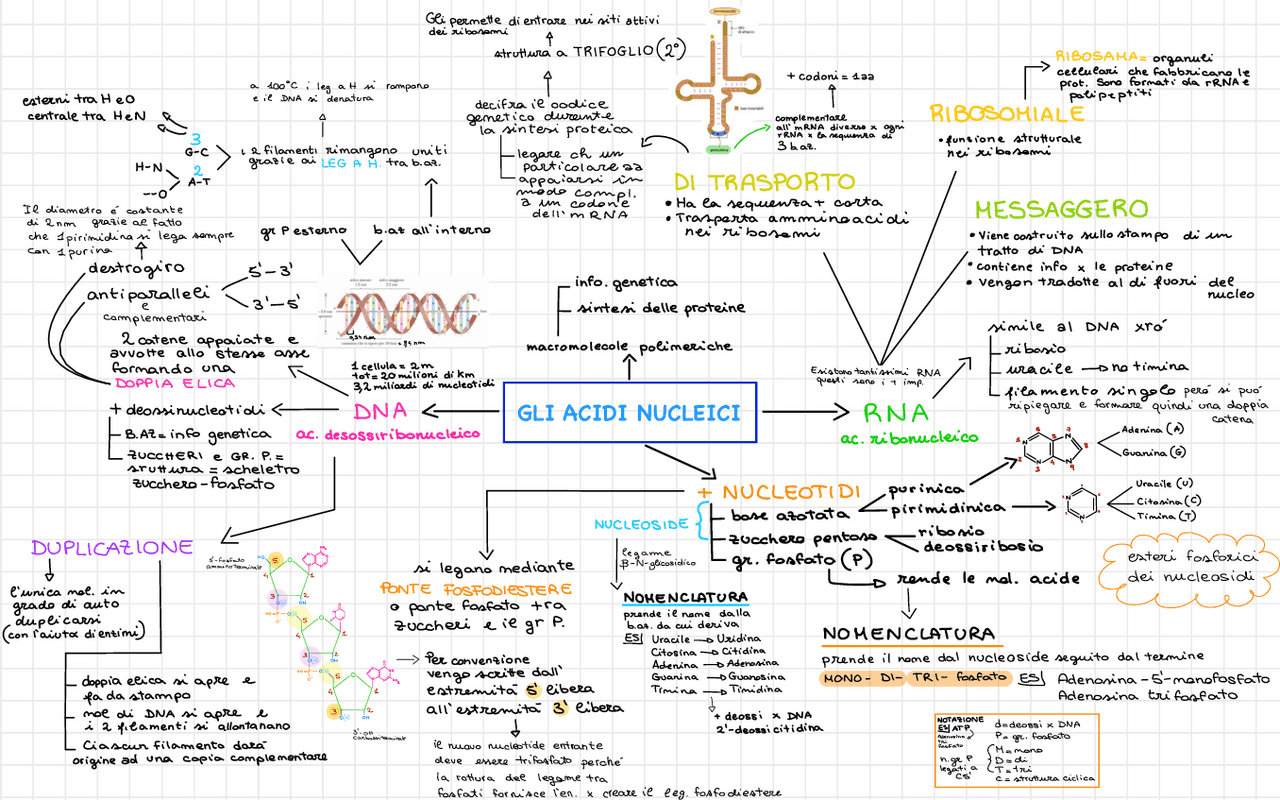 GLI ACIDI NUCLEICI
info. genetica
sintesi delle proteine
macromolecole polimeriche
DNA
ac. desossiribonucleico
1 cellula = 2m
tot = 20 milioni di km
3,2 miliardi di nucleotidi
2 catene appaiate e
avvolte allo stesse asse
formando una
DOPPIA ELICA
destrogiro
antiparalleli
e
complementari
5'-3'
3'-5'
Il diametro é costante
di 2nm grazie al fatto
che 1 pirimidina si lega sempre
con 1 purina
gr P esterno
b.az all'interno
2 filamenti rimangono uniti
grazie ai LEG A H. tra b.az.
a 100°C i leg a H si rompono
e il DNA si denatura
3
G-C
2
A-T
H-N
--O
esterni tra H e O
centrale tra H e N
+ deossinucleotidi
B.AZ = info genetica
ZUCCHERI e GR. P. =
struttura = scheletro
zucchero-fosfato
DUPLICAZIONE
l'unica mol. in
grado di auto
duplicarsi
(con l'aiuto di enzimi)
doppia elica si apre e
fa da stampo
mol di DNA si apre e
i 2 filamenti si allontanano
Ciascun filamento darà
origine ad una copia complementare
5'-fosfato
3'-OH
RNA
ac. ribonucleico
Esistono tantissimi RNA
questi sono i + imp.
simile al DNA xró
ribosio
uracile → no timina
filamento singolo peró si puó
ripiegare e formare quindi una doppia
catena
DI TRASPORTO
• Ha la sequenza + corta
• Trasporta amminoacidi
nei ribosomi
decifra il codice
genetico durente
la sintesi proteica
legare ch un
particolare aa
appaiarsi in
modo compl.
a un codone
dell'mRNA
struttura a TRIFOGLIO (2°)
Gli permette di entrare nei siti attivi
dei ribosomi
complementare
all'mRNA diverso x ogni
tRNA x la sequenza di
3 b.az.
+ codoni = 1aa
RIBOSOMIALE
• funzione strutturale
nei ribosomi
RIBOSAMA = organuli
cellulari che fabbricano le
prot. Sono formati da rRNA e
polipeptiti
MESSAGGERO
• Viene costruito sullo stampo di un
tratto di DNA
• contiene info x le proteine
• Vengon tradotte al di fuori del
nucleo
+ NUCLEOTIDI
NUCLEOSIDE
base azotata
zucchero pentoso
gr. fosfato (P)
purinica
pirimidinica
Adenina (A)
Guanina (G)
Uracile (U)
Citosina (C)
Timina (T)
ribosio
deossiribosio
rende le mol. acide
esteri fosforici
dei nucleosidi
legame
β-N-glicosidico
NOMENCLATURA
prende il nome dalla
b.az. da cui deriva
ES| Uracile → Uridina
Citosina → Citidina
Adenina → Adenosina
Guanina → Guanosina
Timina → Timidina
+ deossi x DNA
2'-deossicitidina
NOMENCLATURA
prende il nome dal nucleoside seguito dal termine
MONO- DI- TRI- fosfato ES| Adenosina-5'-monofosfato
Adenosina trifosfato
NOTAZIONE
ES| ATP
Adenosina
tri
fosfato
n. gr P
legati a
C5'
d = deossi x DNA
P = gr. fosfato
M = mono
D = di
T = tri
c = struttura ciclica
si legano mediante
PONTE FOSFODIESTERE
o ponte fosfato tra
zuccheri e il gr P.
→ Per convenzione
vengo scritte dall'
estremità 5' libera
all'estremità 3' libera
il nuovo nucleotide entrante
deve essere trifosfato perché
la rottura del legame tra
fosfati fornisce l'en. x creare il leg. fosfodiestere